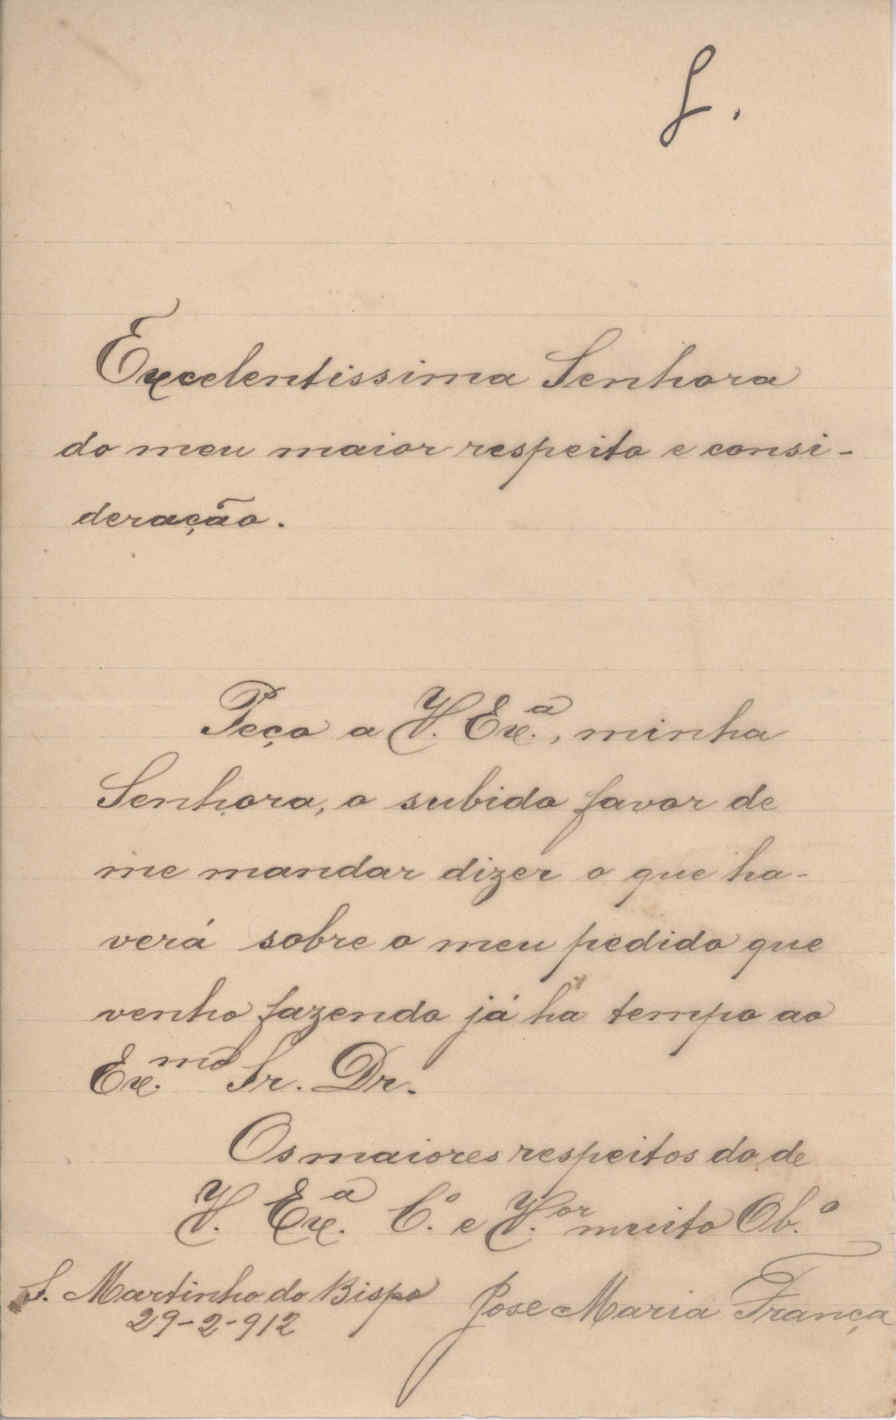 Excelentissima Senhora
do meu maior respeito e consi-
deração.
Peço a V. Ex.ª, minha
Senhora, o subido favor de
me mandar dizer o que ha-
verá sobre o meu pedido que
venho fazendo já há tempo ao
Ex.mo Sr. Dr.
Os maiores respeitos do de
V. Ex.ª C.º e V.or muito Ob.º
S. Martinho do Bispo
29-2-912
Jose Maria França